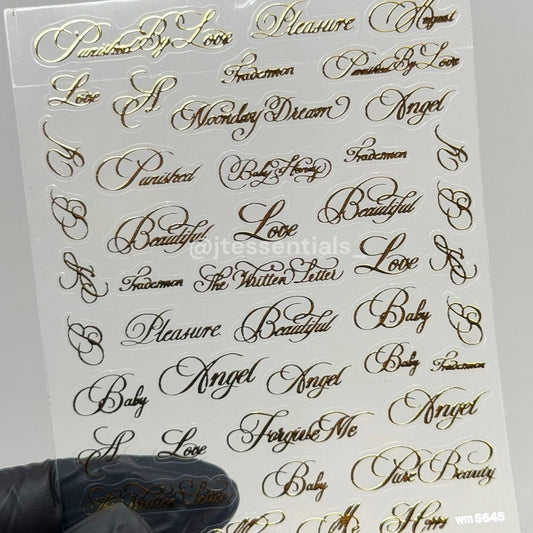 Punished By Love Pleasure August
Love A Traderman Punished By Love
Noonday Dream Angel
Punished Baby Honey Traderman
B Beautiful Love Beautiful B
@jtessentials_
Traderman The Written Letter Love
B Pleasure Beautiful Baby B
Baby Angel Angel Baby Traderman
A Love Forgive Me Angel
The Written Letter Baby Pure Beauty
Me
wm5645